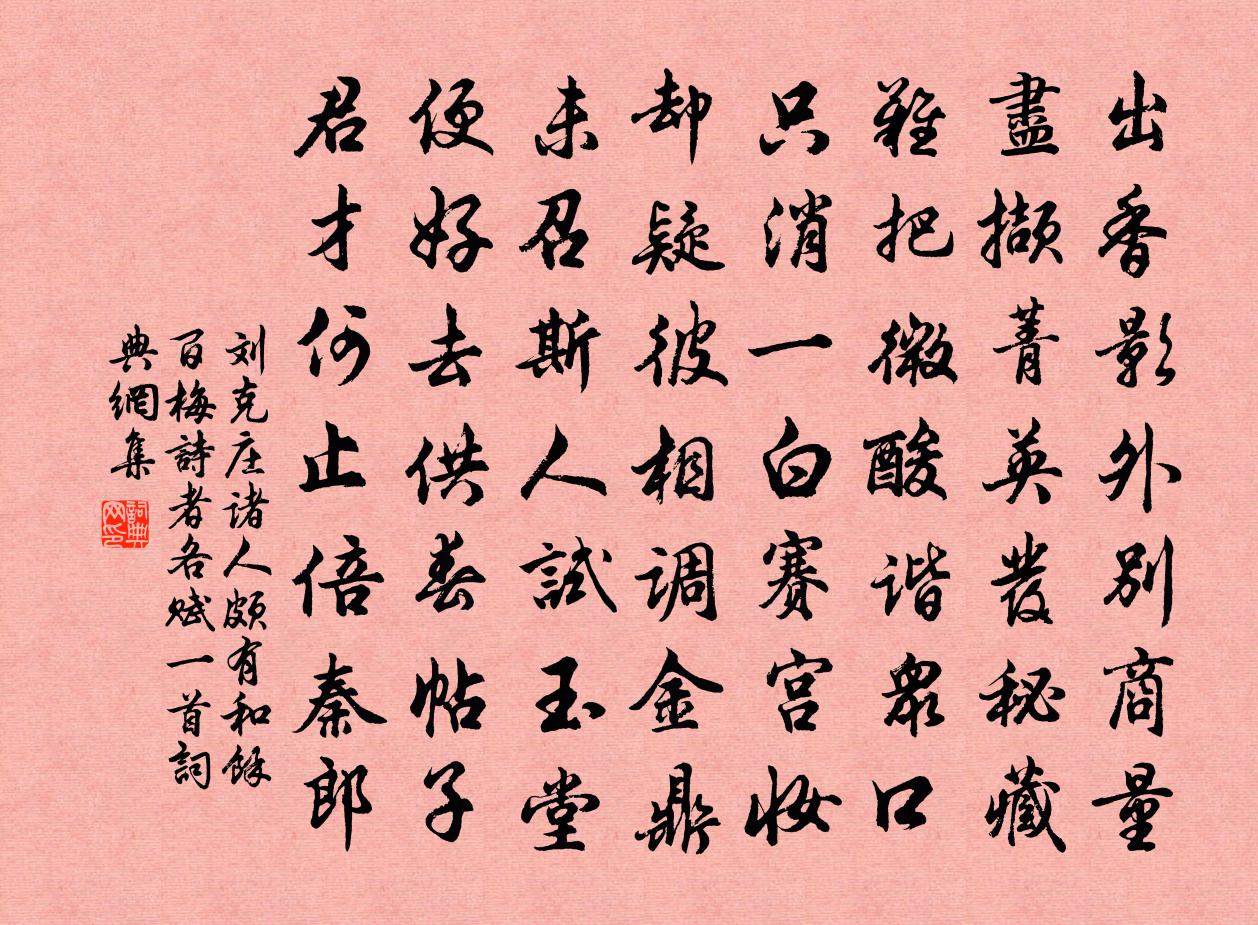 出香影外别商量
盡擷菁英發秘藏
難把微酸谐衆口
只消一白赛宫妆
却疑彼相调金鼎
未召斯人試玉堂
便好去供春帖子
君才何止倍秦郎
刘克庄诸人頗有和餘
百梅詩者各赋一首詞
典網集
詞典网印